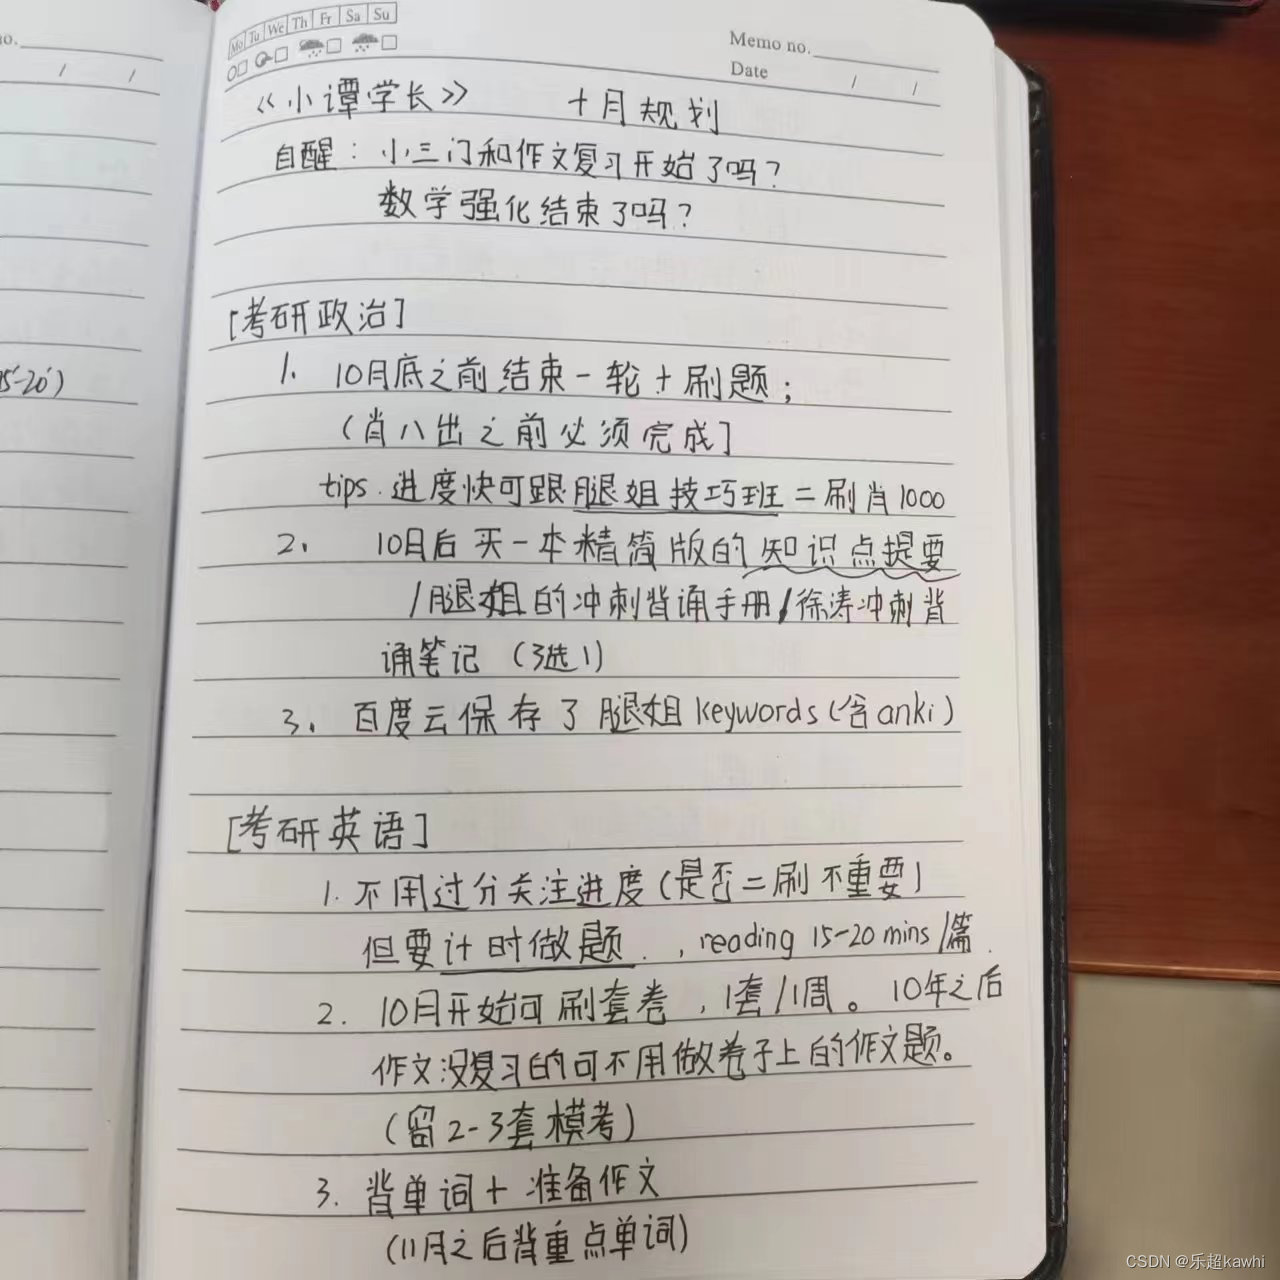 no.
/ /
15'-20')
Mo Tu We Th Fr Sa Su
Memo no.
Date / /
《小谭学长》 十月规划
自醒：小三门和作文复习开始了吗？
数学强化结束了吗？
[考研政治]
1. 10月底之前结束一轮+刷题；
(肖八出之前必须完成]
tips. 进度快可跟腿姐技巧班二刷肖1000
2. 10月后买一本精简版的知识点提要
/腿姐的冲刺背诵手册/徐涛冲刺背
诵笔记（3选1）
3. 百度云保存了腿姐keywords(含anki)
[考研英语]
1. 不用过分关注进度(是否二刷不重要)
但要计时做题.，reading 15-20 mins/篇.
2. 10月开始可刷套卷，1套/1周。10年之后
作文没复习的可不用做卷子上的作文题。
(留2-3套模考)
3. 背单词+准备作文
(11月之后背重点单词)
CSDN @乐超kawhi